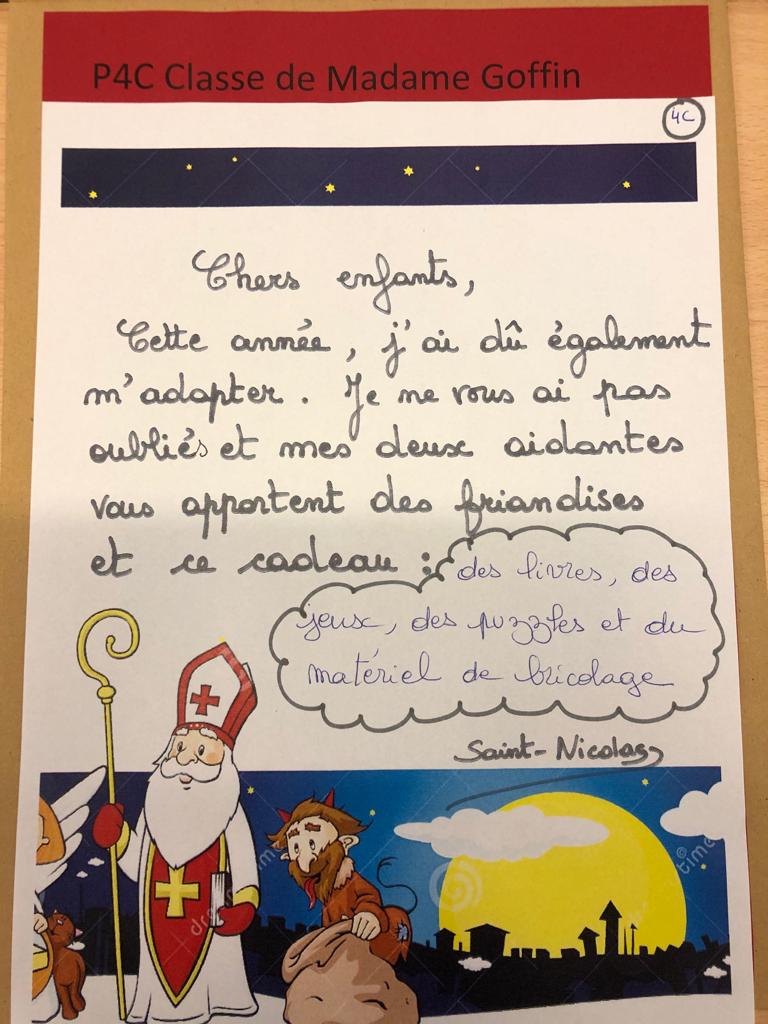 P4C Classe de Madame Goffin
4C
Chers enfants,
Cette année, j'ai dû également
m'adapter. Je ne vous ai pas
oubliés et mes deux aidantes
vous apportent des friandises
et ce cadeau : des livres, des
jeux, des puzzles et du
matériel de bricolage
Saint-Nicolas